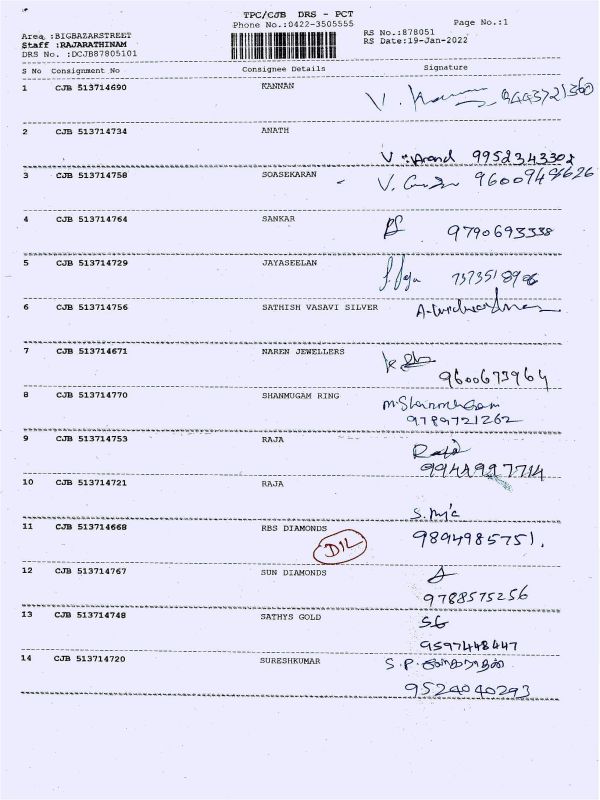 TPC/CJB DRS - PCT
Phone No.:0422-3505555 Page No.:1
Area :BIGBAZARSTREET RS No.:878051
Staff :RAJARATHINAM RS Date:19-Jan-2022
DRS No. :DCJB87805101
S No Consignment No Consignee Details Signature
1 CJB 513714690 KANNAN
9443721360
2 CJB 513714734 ANATH
V. Anand 9952343302
3 CJB 513714758 SOASEKARAN
4 CJB 513714764 SANKAR
9790693338
5 CJB 513714729 JAYASEELAN
6 CJB 513714756 SATHISH VASAVI SILVER
7 CJB 513714671 NAREN JEWELLERS
9600673964
8 CJB 513714770 SHANMUGAM RING
M.Shanmugam
9789721262
9 CJB 513714753 RAJA
Raja
10 CJB 513714721 RAJA
11 CJB 513714668 RBS DIAMONDS
DIL 9894985751.
12 CJB 513714767 SUN DIAMONDS
9788575256
13 CJB 513714748 SATHYS GOLD
SG
9597448447
14 CJB 513714720 SURESHKUMAR
S.P.
9524040293